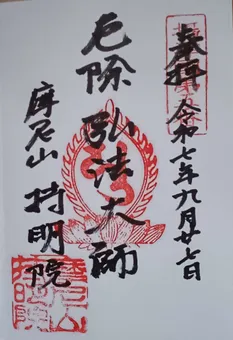 奉拝 令和七年九月廿七日
厄除 弘法大師
摩尼山 持明院